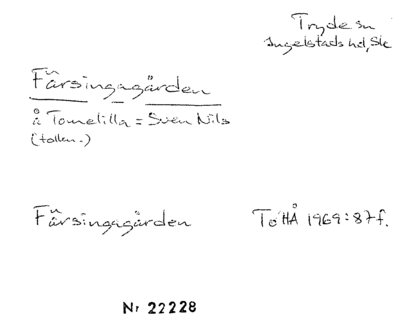 Tryde sn
Ingelstads hd, Sk
Färsingagården
å Tomelilla = Sven Nils
Färsingagården
ToHÅ 1969:87f.
Nr 22228